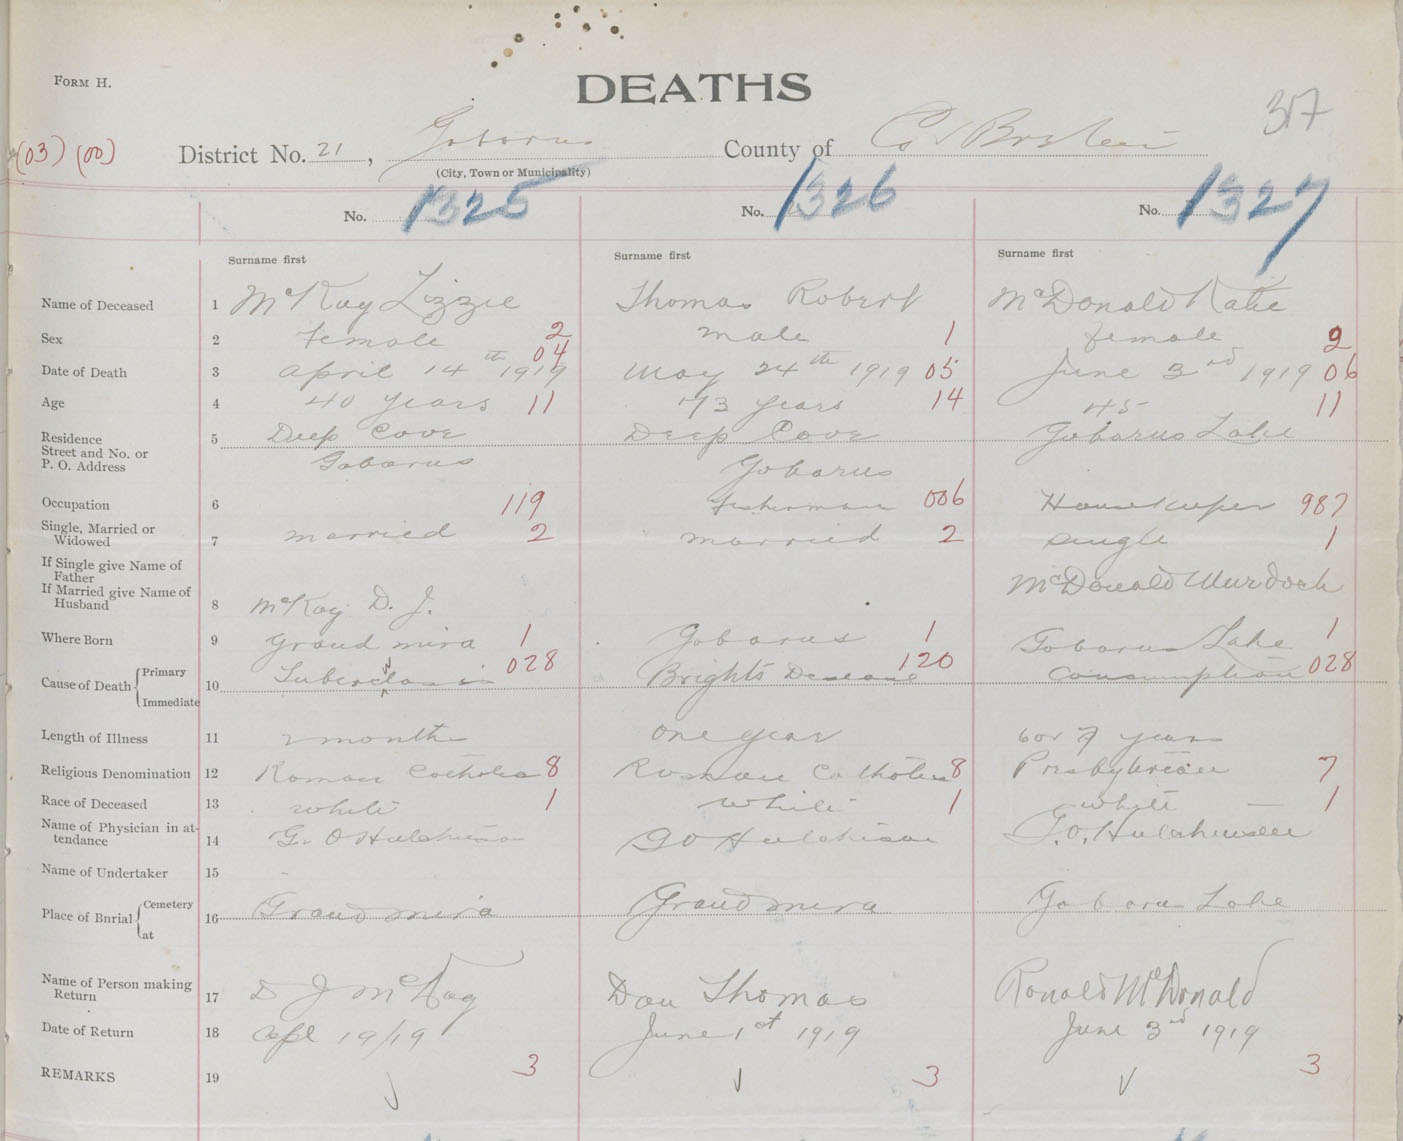 FORM H.
DEATHS
317
(03) (00)
District No. 21, Gobarus County of C. Breton
(City, Town or Municipality)
No. 1325 No. 1326 No. 1327
Surname first Surname first Surname first
Name of Deceased 1 McKay Lizzie Thomas Robert McDonald Katie
Sex 2 female 2 male 1 female 2
Date of Death 3 April 14th 1919 04 May 24th 1919 05 June 3rd 1919 06
Age 4 40 years 11 73 years 14 45 11
Residence 5 Deep Cove Deep Cove Gobarus Lake
Street and No. or
P. O. Address Gobarus Gobarus
Occupation 6 119 fisherman 006 Housekeeper 987
Single, Married or
Widowed 7 married 2 married 2 single 1
If Single give Name of
Father McDonald Murdock
If Married give Name of
Husband 8 McKay D. J.
Where Born 9 Grand mira 1 Gobarus 1 Gobarus Lake 1
Cause of Death { Primary Immediate 10 Tuberclosis 028 Brights Desease 120 Consumption 028
Length of Illness 11 2 months one year 6 or 7 years
Religious Denomination 12 Roman Catholic 8 Roman Catholic 8 Presbyterian 7
Race of Deceased 13 white 1 white 1 white — 1
Name of Physician in at-
tendance 14 G. O Hutchison G O Hutchison G. O. Hutchinson
Name of Undertaker 15 -
Place of Burial { Cemetery at 16 Grand mira Grand mira Gobarus Lake
Name of Person making
Return 17 D J McKay Dan Thomas Ronald McDonald
Date of Return 18 Apl 19/19 June 1st 1919 June 3rd 1919
REMARKS 19 3 3 3